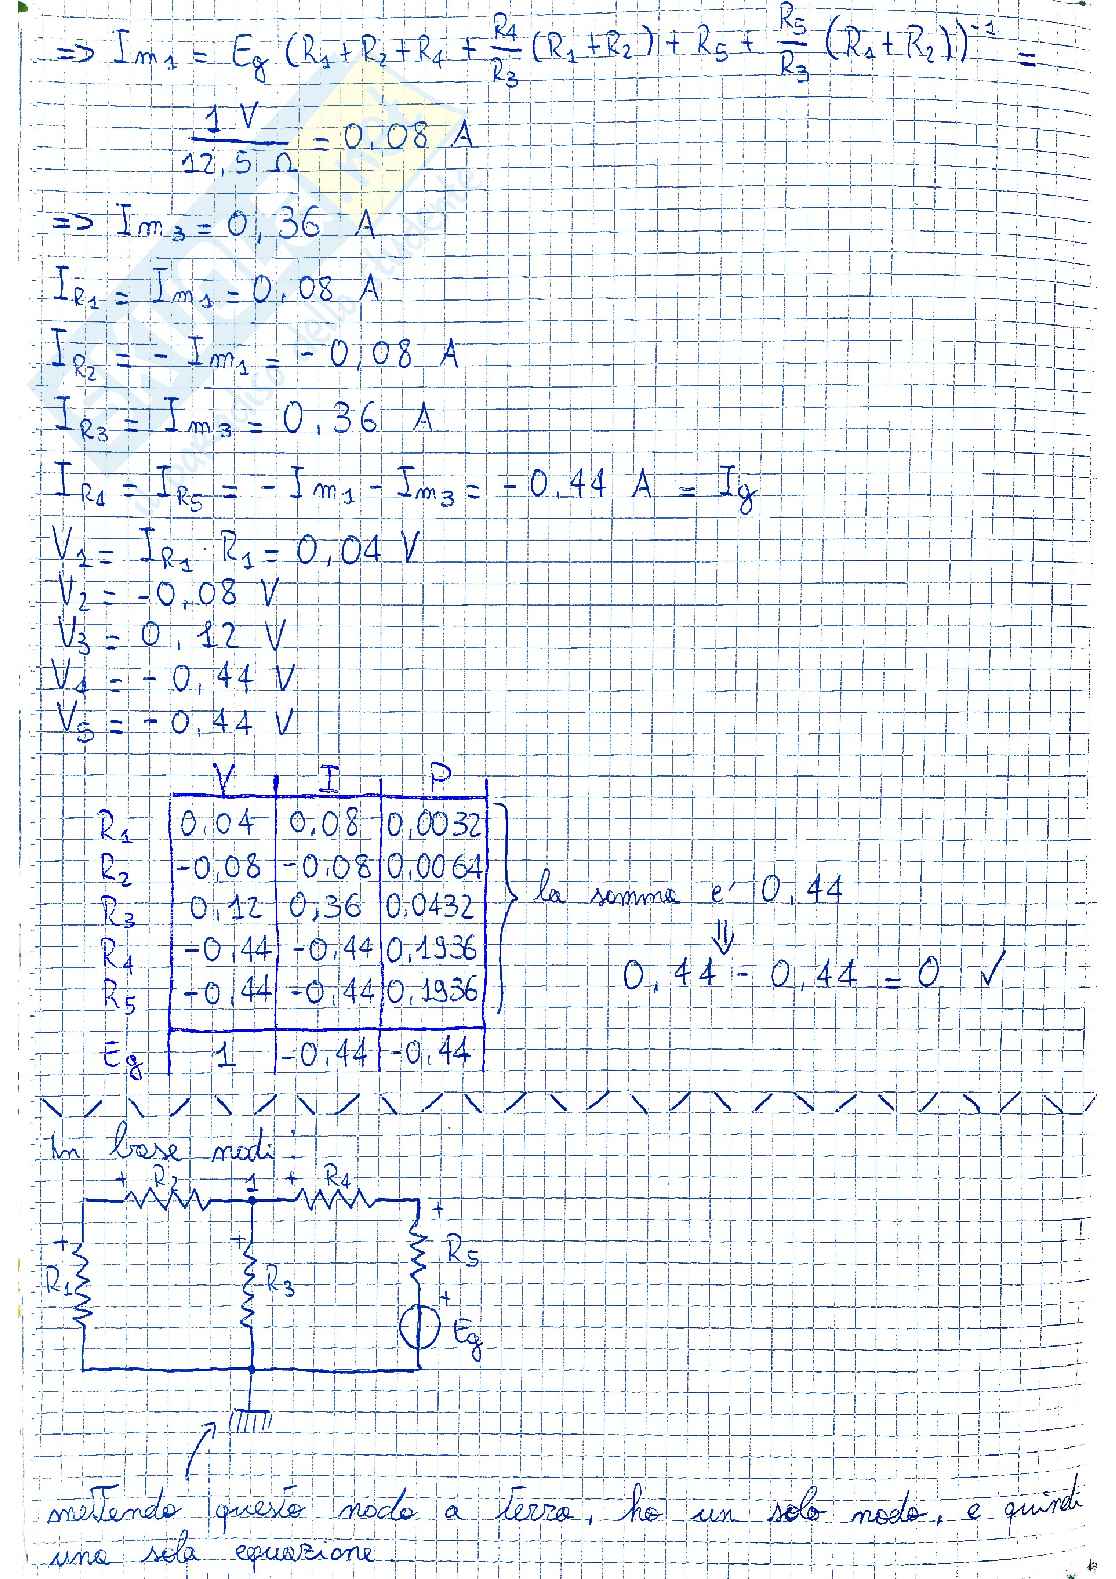 => Im₁ = Eg (R₁+R₂+R₄ + R₄/R₃ (R₁+R₂) + R₅ + R₅/R₃ (R₁+R₂))⁻¹ =
1 V / 12,5 Ω = 0,08 A
=> Im₃ = 0,36 A
I_R₁ = Im₁ = 0,08 A
I_R₂ = - Im₁ = -0,08 A
I_R₃ = Im₃ = 0,36 A
I_R₄ = I_R₅ = - Im₁ - Im₃ = -0,44 A = Ig
V₁ = I_R₁ · R₁ = 0,04 V
V₂ = -0,08 V
V₃ = 0,12 V
V₄ = -0,44 V
V₅ = -0,44 V
V I P
R₁ 0,04 0,08 0,0032
R₂ -0,08 -0,08 0,0064
R₃ 0,12 0,36 0,0432
R₄ -0,44 -0,44 0,1936
R₅ -0,44 -0,44 0,1936
la somma e' 0,44
⇓
0,44 - 0,44 = 0 ✓
Eg 1 -0,44 -0,44
In base nodi:
+ R₂ 1 + R₄
+ R₁ + R₃ + R₅
+ Eg
mettendo questo nodo a terra, ho un solo nodo, e quindi
una sola equazione